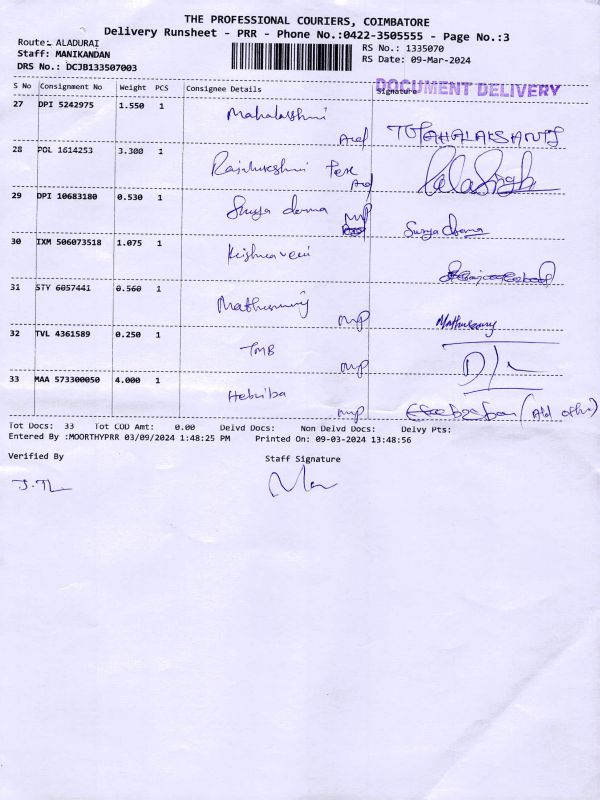 THE PROFESSIONAL COURIERS, COIMBATORE
Delivery Runsheet - PRR - Phone No.:0422-3505555 - Page No.:3
Route: ALADURAI
RS No.: 1335070
Staff: MANIKANDAN
RS Date: 09-Mar-2024
DRS No.: DCJB133507003
DOCUMENT DELIVERY
S No Consignment No Weight PCS Consignee Details Signature
27 DPI 5242975 1.550 1 Mahalakshmi
28 POL 1614253 3.300 1 Tex
29 DPI 10683180 0.530 1 Surya mp Surya
30 IXM 506073518 1.075 1 Krishnaveni
31 STY 6057441 0.560 1 mp
32 TVL 4361589 0.250 1 TMB mp
33 MAA 573300050 4.000 1 Hebziba mp
Tot Docs: 33 Tot COD Amt: 0.00 Delvd Docs: Non Delvd Docs: Delvy Pts:
Entered By :MOORTHYPRR 03/09/2024 1:48:25 PM Printed On: 09-03-2024 13:48:56
Verified By Staff Signature